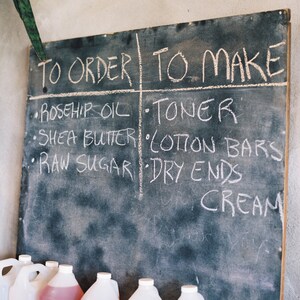 TO ORDER
• ROSEHIP OIL
• SHEA BUTTER
• RAW SUGAR
TO MAKE
• TONER
• LOTION BARS
• DRY ENDS
CREAM